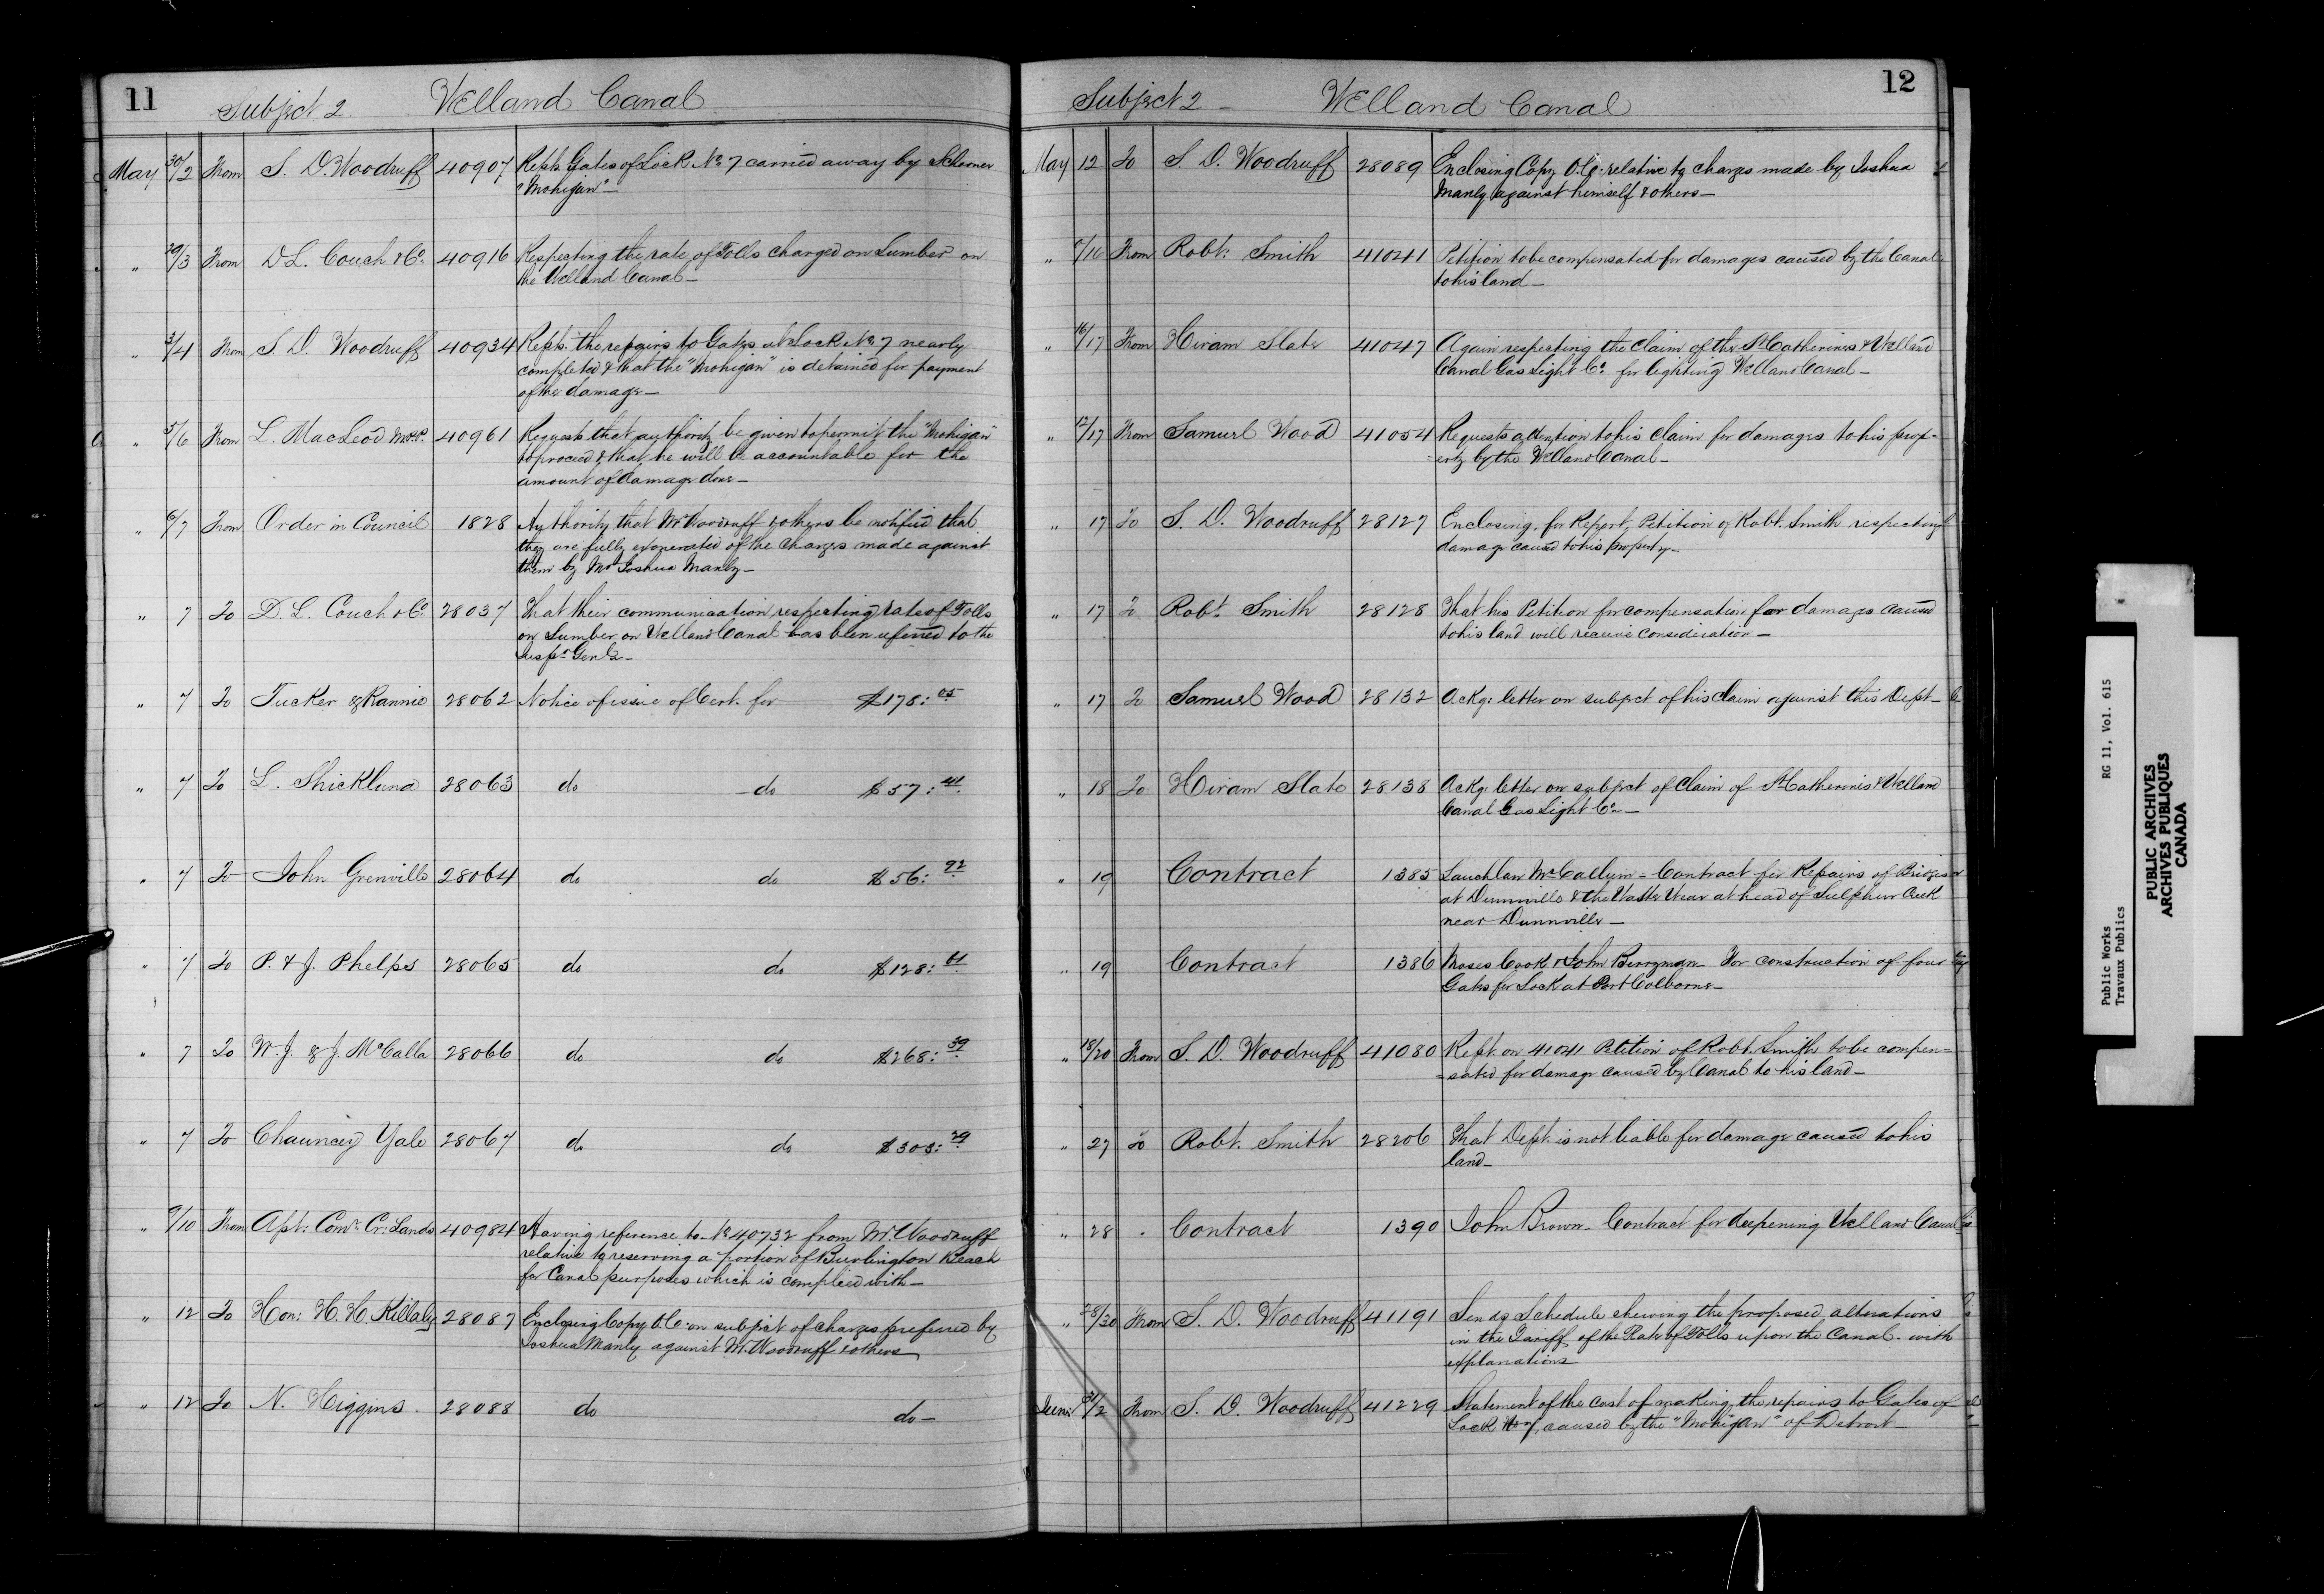 11
Subject 2. Welland Canal
May 30/2 From S. D. Woodruff 40907 Repts. Gates of Lock No. 7 carried away by Schooner
"Mohigan" —
" 29/3 From D L. Couch & Co. 40916 Respecting the rate of Tolls charged on Lumber on
the Welland Canal —
" 3/4 From S. D. Woodruff 40934 Repts. the repairs to Gates at Lock No. 7 nearly
completed & that the "Mohigan" is detained for payment
of the damage —
" 5/6 From L. MacLeod M.P.P. 40961 Requests that authority be given to permit the "Mohigan"
to proceed & that he will be accountable for the
amount of damage done —
" 6/7 From Order in Council 1828 Authority that Mr Woodruff & others be notified that
they are fully exonerated of the charges made against
them by Mr Joshua Manly —
" 7 To D. L. Couch & Co. 28037 That their communication respecting rate of Tolls
on Lumber on Welland Canal has been referred to the
Inspr Genl —
" 7 To Tucker & Rannie 28062 Notice of issue of Cert. for $178:05
" 7 To L. Shickluna 28063 do do $57:41
" 7 To John Grenville 28064 do do $56:92
" 7 To P. & J. Phelps 28065 do do $128:61
" 7 To W. J. & J. McCalla 28066 do do $268:39
" 7 To Chauncey Yale 28067 do do $303:79
" 9/10 From Asst: Comr. Cr: Lands 40984 Having reference to No 40732 from Mr. Woodruff
relative to reserving a portion of Burlington Beach
for Canal purposes which is complied with —
" 12 To Hon: H. H. Killaly 28087 Enclosing Copy O.C. on subject of charges preferred by
Joshua Manly against Mr. Woodruff & others
" 12 To N. Higgins 28088 do do —
12
Subject 2 — Welland Canal
May 12 To S. D. Woodruff 28089 Enclosing Copy O.C. relative to charges made by Joshua
Manly against himself & others —
" /16 From Robt. Smith 41041 Petition to be compensated for damages caused by the Canal
to his land —
" 16/17 From Hiram Slate 41047 Again respecting the claim of the St Catherines & Welland
Canal Gas Light Co. for lighting Welland Canal —
" 12/17 From Samuel Wood 41054 Requests attention to his claim for damages to his prop=
=erty by the Welland Canal —
" 17 To S. D. Woodruff 28127 Enclosing, for Report, Petition of Robt. Smith respecting
damage caused to his property —
" 17 To Robt. Smith 28128 That his Petition for compensation for damages caused
to his land will receive consideration —
" 17 To Samuel Wood 28132 Ackg. letter on subject of his claim against this Dept —
" 18 To Hiram Slate 28138 Ackg. letter on subject of claim of St Catherines & Welland
Canal Gas Light Co —
" 19 Contract 1385 Lauchlan McCallum — Contract for Repairs of Bridges
at Dunnville & the Waste Wear at head of Sulphur Creek
near Dunnville —
" 19 Contract 1386 Moses Cook & John Berryman — For construction of four
Gates for Lock at Port Colborne —
" 18/20 From S. D. Woodruff 41080 Rept. on 41041 Petition of Robt. Smith to be compen=
=sated for damage caused by Canal to his land —
" 27 To Robt. Smith 28206 That Dept. is not liable for damage caused to his
land —
" 28 Contract 1390 John Brown — Contract for deepening Welland Canal
" 28/30 From S. D. Woodruff 41191 Sends Schedule shewing the proposed alterations
in the Tariff of the Rate of Tolls upon the Canal with
explanations
June 31/2 From S. D. Woodruff 41229 Statement of the cost of making the repairs to Gates of
Lock No 7, caused by the "Mohigan" of Detroit —
Public Works RG 11, Vol. 615
Travaux Publics
PUBLIC ARCHIVES
ARCHIVES PUBLIQUES
CANADA